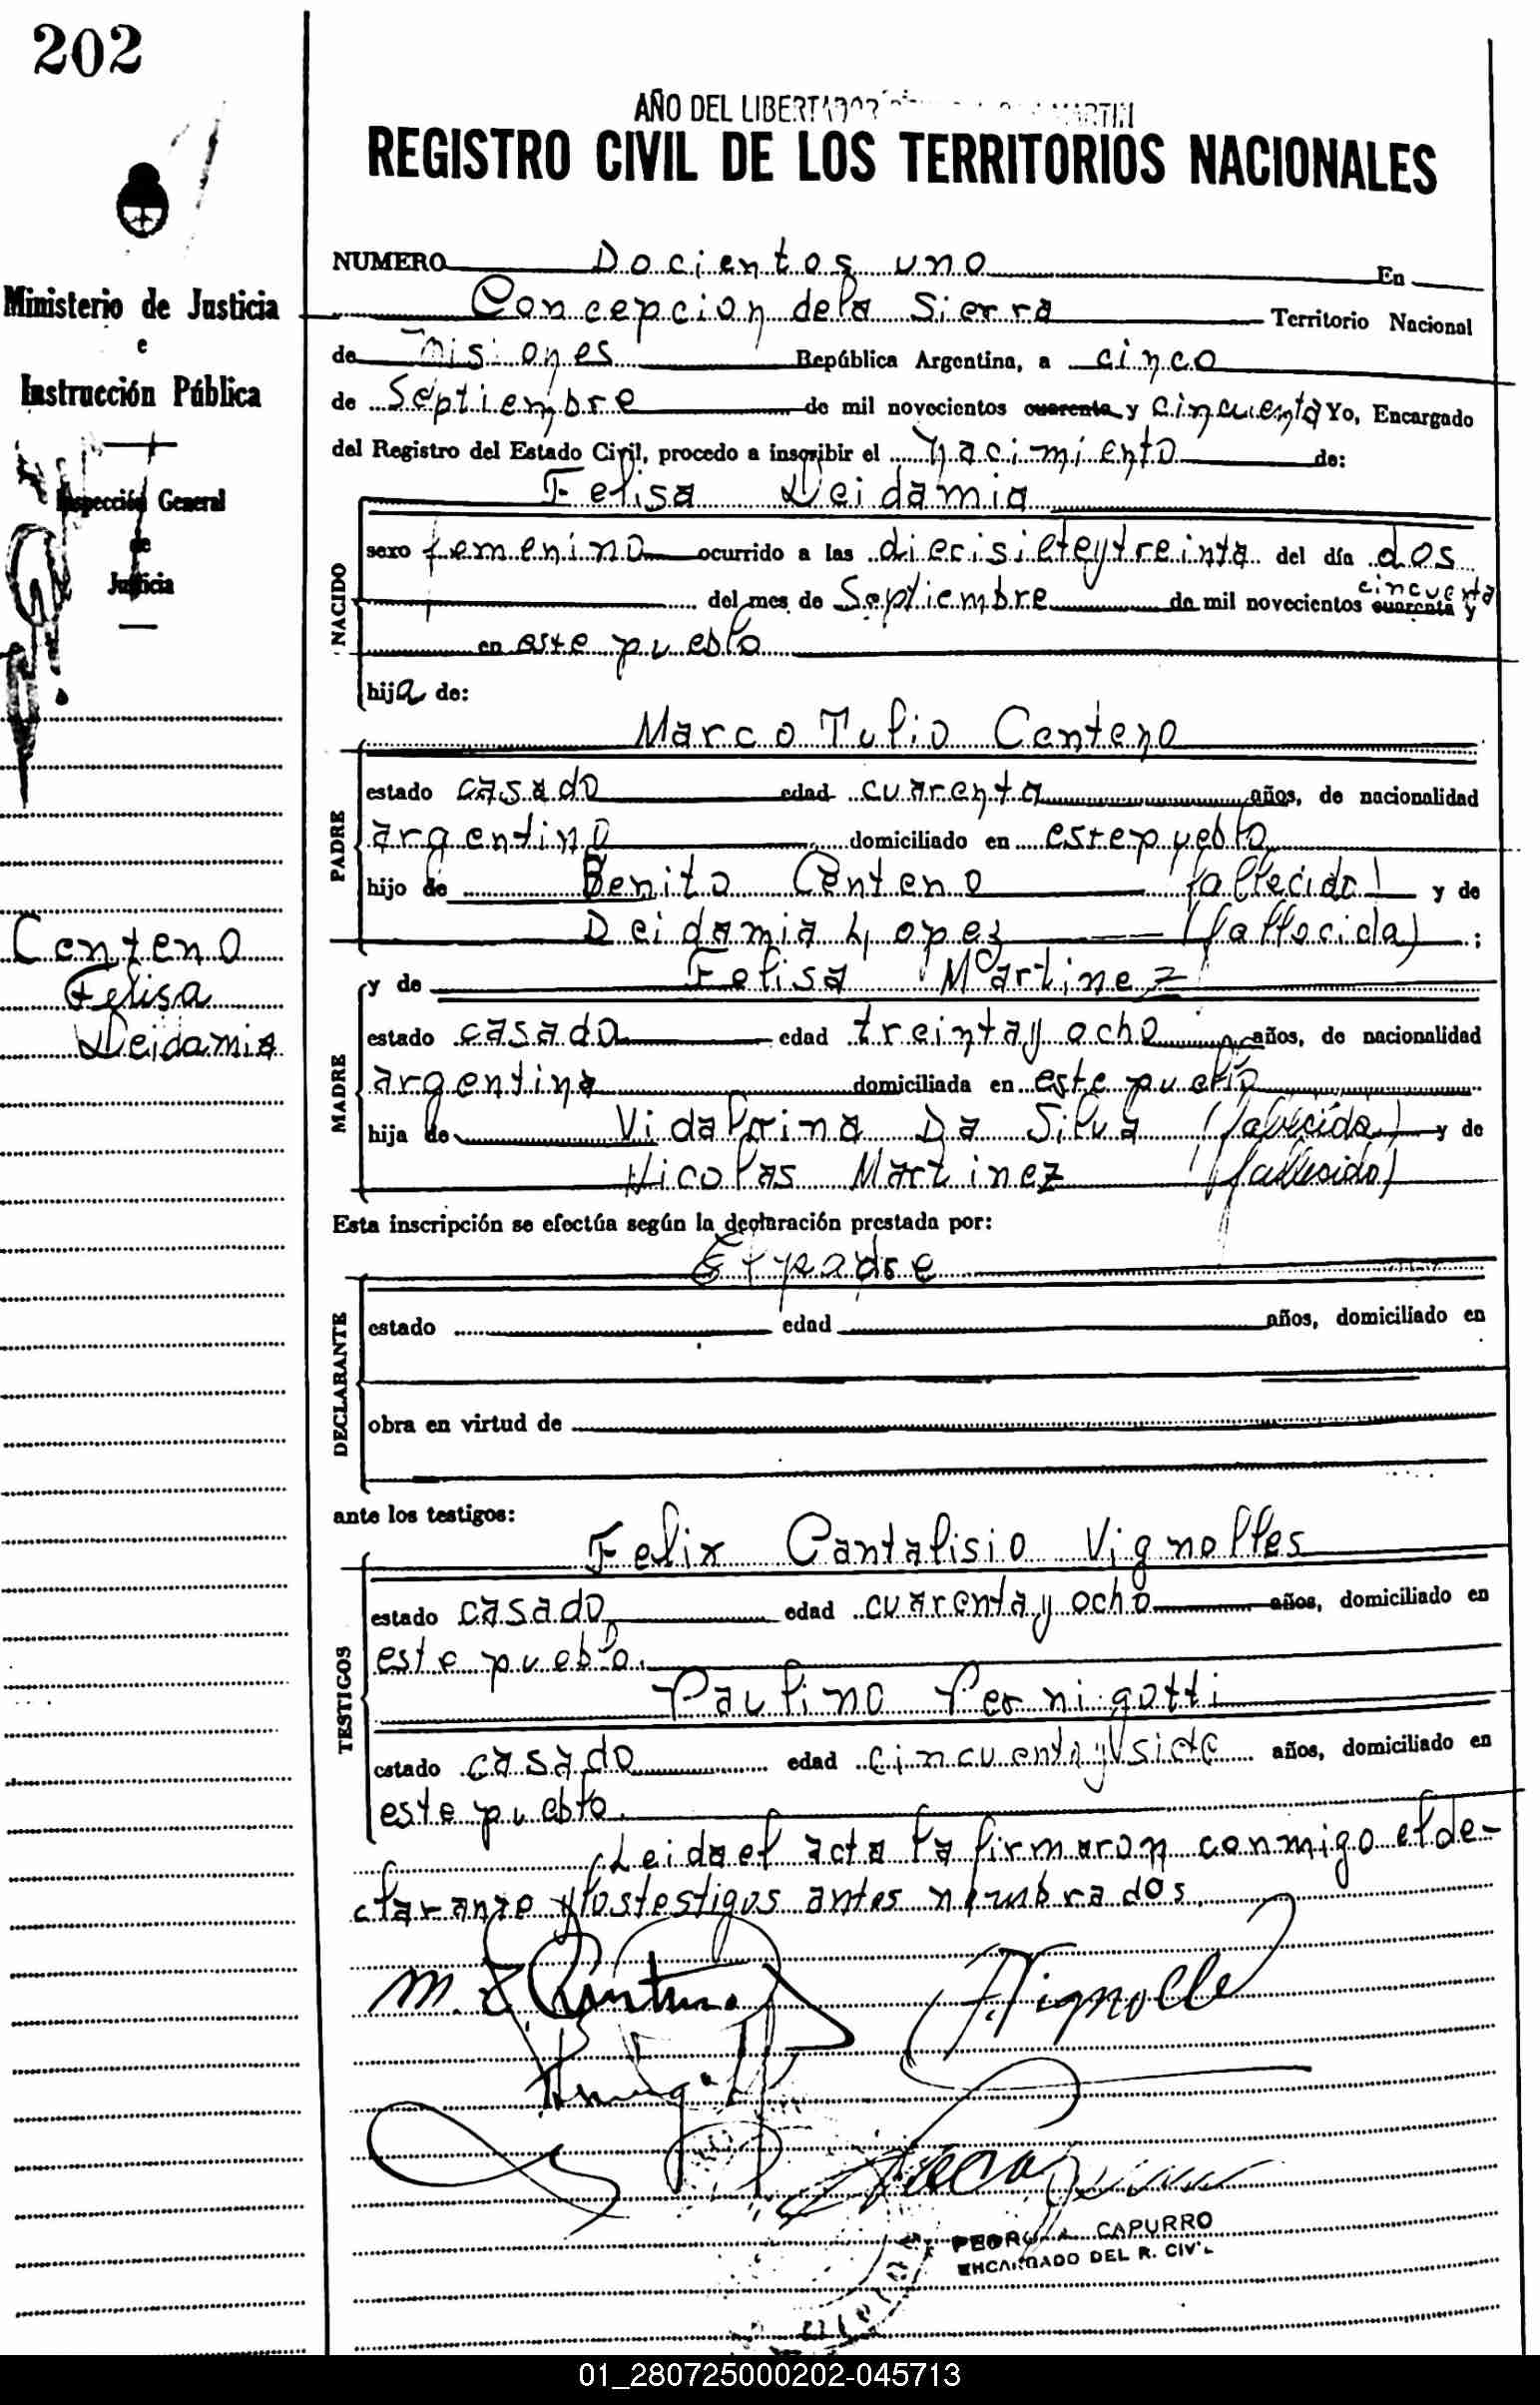 202
AÑO DEL LIBERTADOR MARTIN
REGISTRO CIVIL DE LOS TERRITORIOS NACIONALES
Ministerio de Justicia
e
Instrucción Pública
Inspección General
de
Justicia
Centeno
Felisa
Deidamia
NUMERO Docientos uno En
Concepcion dela Sierra Territorio Nacional
de Misiones República Argentina, a cinco
de Septiembre de mil novecientos cuarenta y cincuenta Yo, Encargado
del Registro del Estado Civil, procedo a inscribir el nacimiento de:
Felisa Deidamia
NACIDO
sexo femenino ocurrido a las diecisieteytreinta del día dos
cincuenta
del mes de Septiembre de mil novecientos cuarenta y
en este pueblo
hija de:
Marco Tulio Centeno
PADRE
estado casado edad cuarenta años, de nacionalidad
argentino domiciliado en este pueblo
hijo de Benito Centeno (fallecido) y de
Deidamia Lopez (fallecida) ;
y de Felisa Martinez
MADRE
estado casada edad treintay ocho años, de nacionalidad
argentina domiciliada en este pueblo
hija de Vidalrina Da Silva (fallecida) y de
Nicolas Martinez (fallecido)
Esta inscripción se efectúa según la declaración prestada por:
El padre
DECLARANTE
estado edad años, domiciliado en
obra en virtud de
ante los testigos:
Felix Cantalisio Vignolles
TESTIGOS
estado casado edad cuarentay ocho años, domiciliado en
este pueblo.
Paulino Pernigotti
estado casado edad cincuentaysiete años, domiciliado en
este pueblo.
Leida el acta la firmaron conmigo el de-
clarante y los testigos antes nombrados.
M. T. Centeno
F. Vignolle
PEDRO A. CAPURRO
ENCARGADO DEL R. CIVIL
01_280725000202-045713